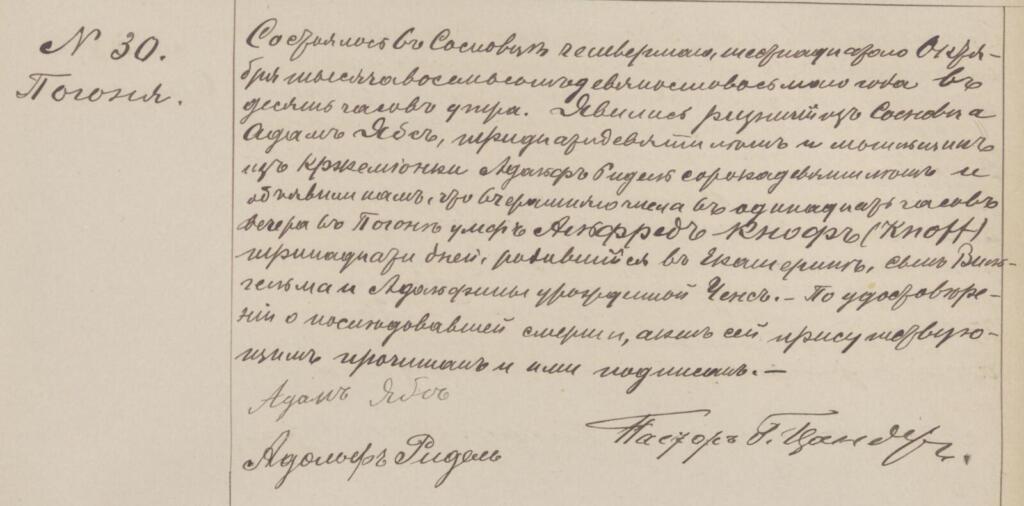 N 30.
Погоня.
Состоялось въ Сосновцѣ четвертаго, шестнадцатаго Октя-
бря тысяча восемьсотъ девяностовосьмого года въ
десять часовъ утра. Явились рѣзчикъ изъ Сосновца
Адамъ Ябсъ, тридцатидевяти лѣтъ и
изъ Кржемionки Адольфъ Ридель сорокадевяти лѣтъ и
объявили намъ, что вчерашняго числа въ одинадцать часовъ
вечера въ Погонѣ умеръ Альфредъ Кнофъ (Knoff)
тринадцати дней, родившійся въ Екатеринѣ, сынъ Виль-
гельма и Адольфины урожденной Ченсъ. — По удостовѣре-
ніи о послѣдовавшей смерти, актъ сей присутствую-
щимъ прочитанъ и ими подписанъ. —
Адамъ Ябсъ
Адольфъ Ридель
Пасторъ Г. Цандеръ.